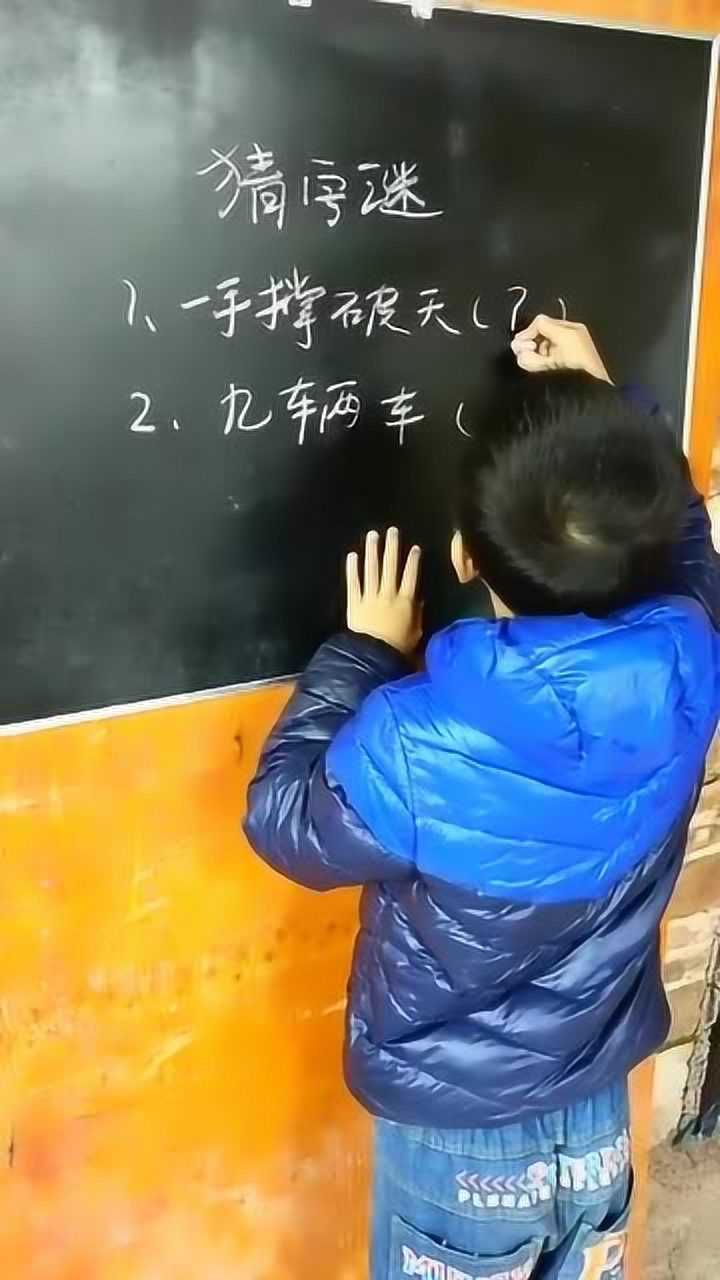 猜字谜
1、一手撑破天(
2、九车两车(